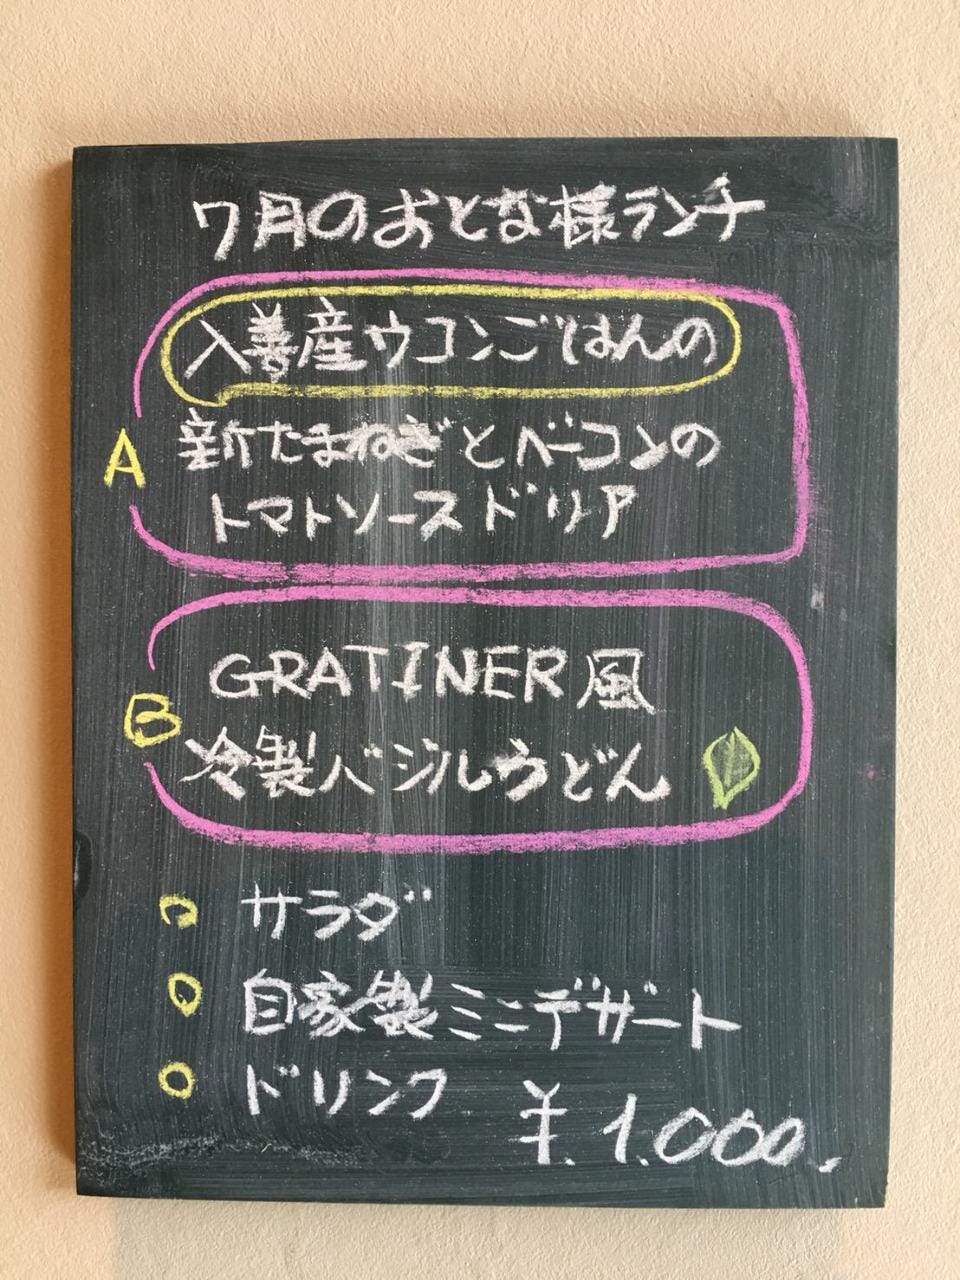 7月のおとな様ランチ
入善産ウコンごはんの
A
新たまねぎとベーコンの
トマトソースドリア
GRATINER風
B
冷製バジルうどん
サラダ
自家製ミニデザート
ドリンク
¥1.000.